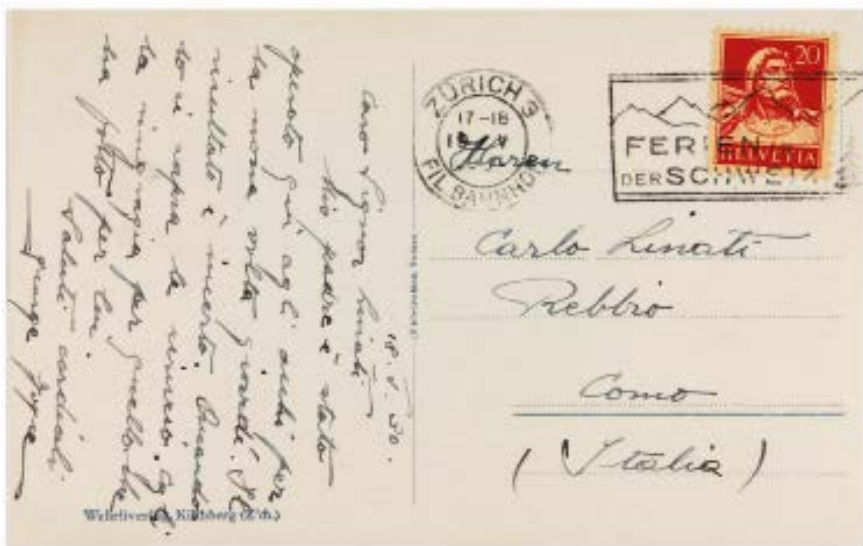 18. V. 30.
Caro Signor Linati
Mio padre è stato
operato qui agli occhi per
la nona volta giovedì. Il
risultato è incerto. Quando
lo si saprà le
la ringrazia per quello che
ha fatto per lei.
Saluti cordiali
George Joyce
Wehrliverlag, Kilchberg (Zch.)
ZÜRICH 3
17-18
V
FIL. BAHNHOF
FERIEN
DER SCHWEIZ
20
HELVETIA
Carlo Linati
Rebbio
Como
(Italia)